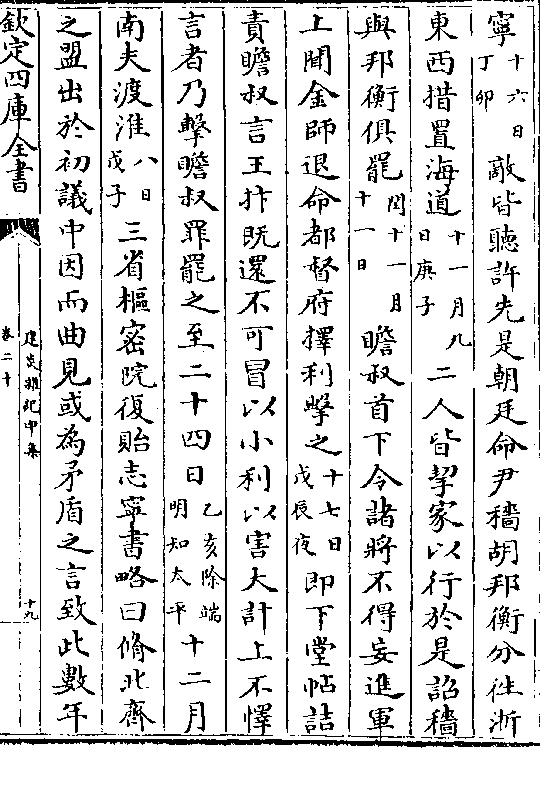 寧十六日丁卯敵皆聽許先是朝廷命尹穡胡邦衡分往浙
東西措置海道十一月九日庚子二人皆挈家以行於是詔穡
與邦衡俱罷閏十一月十一日瞻叔首下令諸將不得妄進軍
上聞金師退命都督府擇利擊之十七日戊辰夜即下堂帖詰
責瞻叔言王抃既還不可冒以小利以害大計上不懌
言者乃擊瞻叔罪罷之至二十四日乙亥除端明知太平十二月
南夫渡淮八日戊子三省樞密院復貽志寧書略曰脩北齊
之盟出於初議中因而曲見或為矛盾之言致此數年
欽定四庫全書
建炎雜記甲集
卷二十
十九